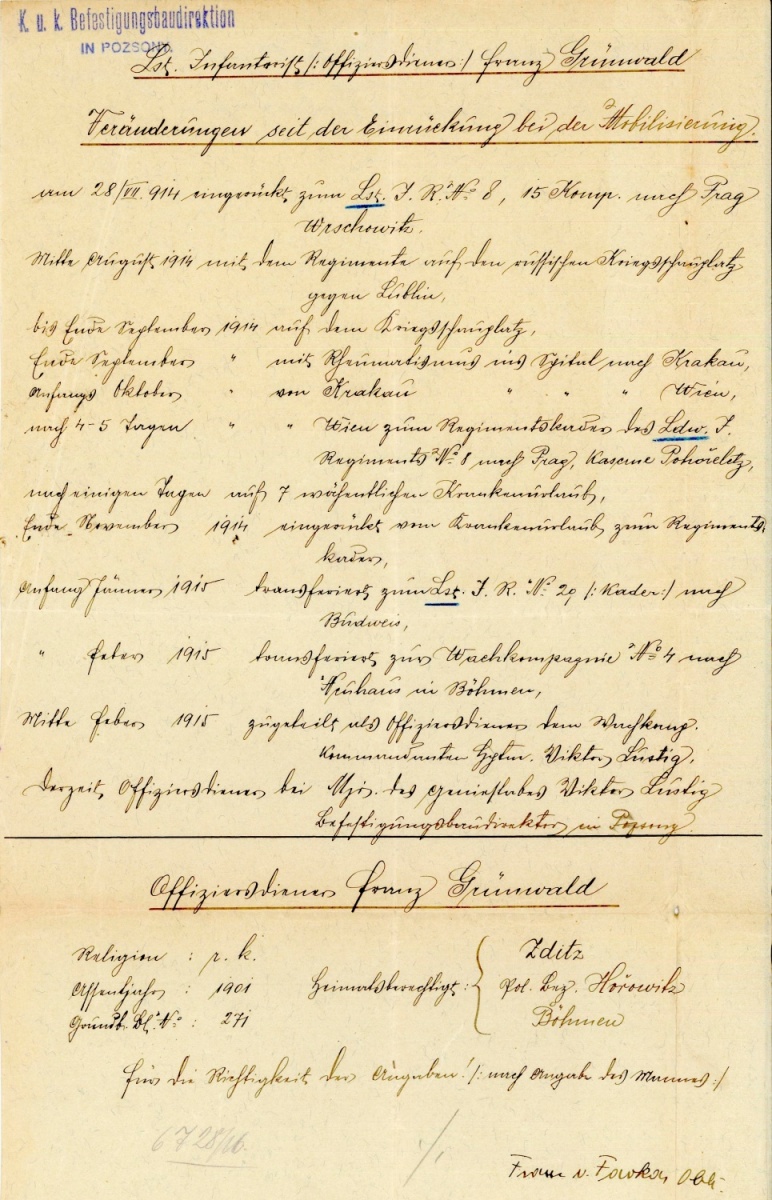 K. u. k. Befestigungsbaudirektion
IN POZSONY.
Lst. Infanterist /: Offiziersdiener :/ Franz Grünwald
Veränderungen seit der Einrückung bei der Mobilisierung.
am 28/VII. 914 eingerückt zum Lst. I. R. No 8, 15 Komp. nach Prag
Wrschowitz.
Mitte August 1914 mit dem Regimente auf den russischen Kriegsschauplatz
gegen Lublin,
bis Ende September 1914 auf dem Kriegsschauplatz,
Ende September " mit Rheumatismus ins Spital nach Krakau,
Anfangs Oktober " von Krakau " " " Wien,
nach 4-5 Tagen " " Wien zum Regimentskader des Ldw. I.
Regiments No 8 nach Prag, Kaserne Pohořeletz,
nach einigen Tagen auf 7 wöchentlichen Krankenurlaub,
Ende November 1914 eingerückt vom Krankenurlaub zum Regiments
kader,
Anfang Jänner 1915 transferiert zum Lst. I. R. No 29 /: Kader :/ nach
Budweis,
" Feber 1915 transferiert zur Wachkompagnie No 4 nach
Neuhaus in Böhmen,
Mitte Feber 1915 zugeteilt als Offiziersdiener dem Wachkomp.
Kommandanten Hptm. Viktor Lustig,
derzeit Offiziersdiener bei Mjr. des Geniestabes Viktor Lustig
Befestigungsbaudirektor in Pozsony.
Offiziersdiener Franz Grünwald
Religion : r. k.
Assentjahr : 1901
Grundb. Bl. No : 271
Heimatsberechtigt :
Zditz
Pol. Bez. Hořowitz
Böhmen
Für die Richtigkeit der Angaben! /: nach Angabe des Mannes :/
6728/16.
./.